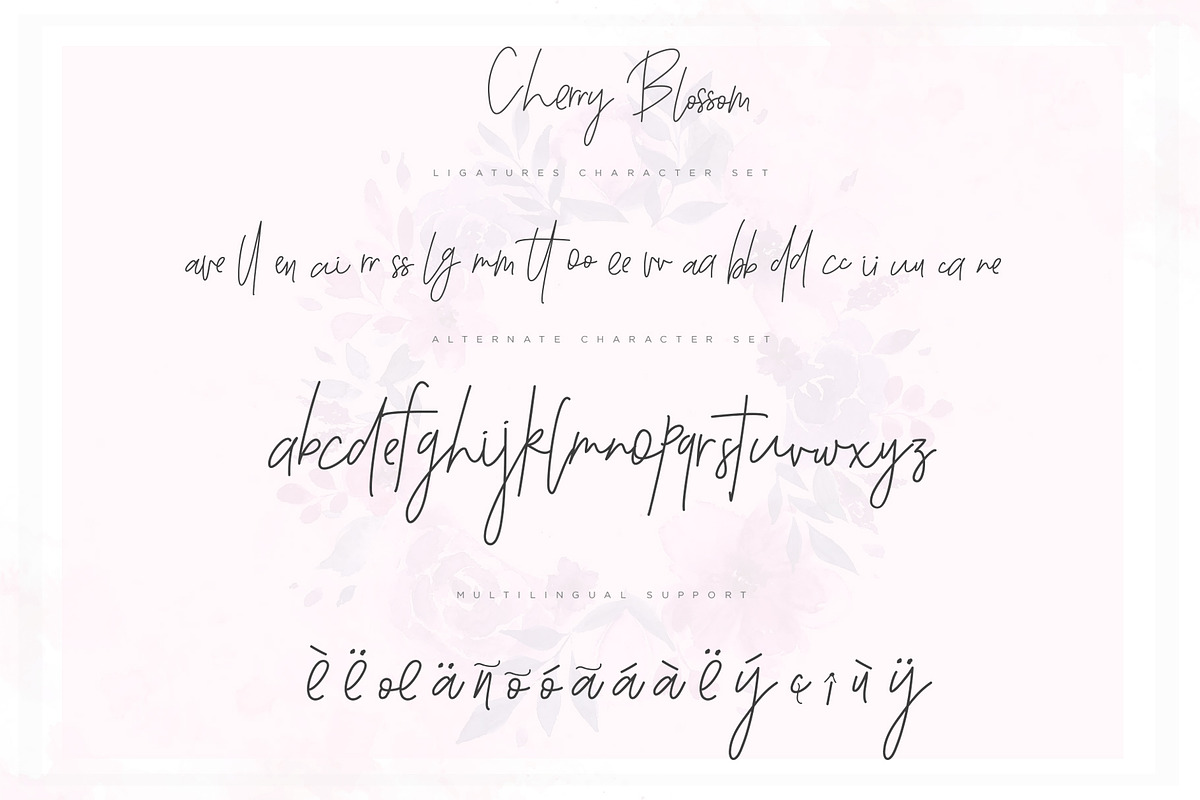 Cherry Blossom
LIGATURES CHARACTER SET
ave ll en ai rr ss lg mm tt oo ee vv aa bb dd cc ii uu ca ne
ALTERNATE CHARACTER SET
abcdefghijklmnopqrstuvwxyz
MULTILINGUAL SUPPORT
è ë œ ä ñ õ ó ã á à ë ý ç î ù ÿ